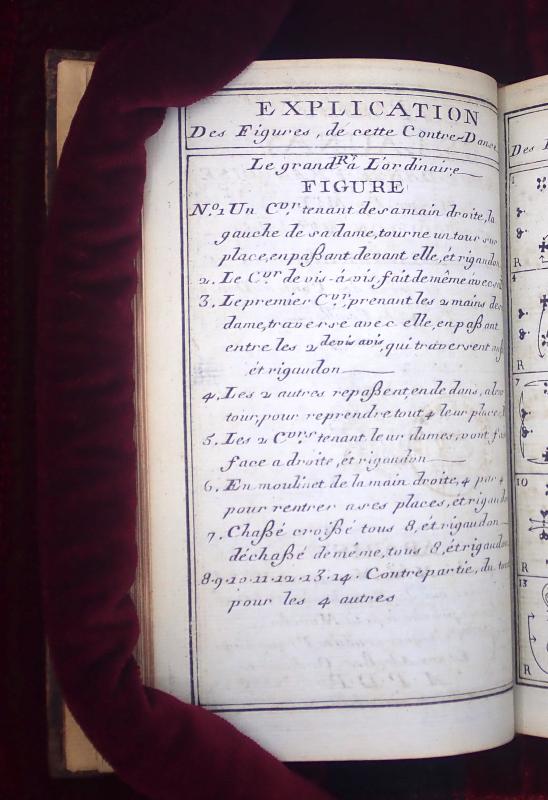 EXPLICATION
Des Figures, dé cette Contre-Danse
Le grand Rᵈ á L'ordinaire
FIGURE
N.º1 Un Cvr. tenant de sa main droite, la
gauche de sa dame, tourne un tour sur
place, en paßant devant elle, ét rigaudon
2. Le Cvr de vis-á-vis fait de même ávec
3. Le premier Cvr. prenant les 2 mains de
dame, traverse avec elle, en paßant
entre les 2 devis avis, qui traversent
ét rigaudon
4. Les 2 autres repaßent en dedans,
tour, pour reprendre tout 4 leur place
5. Les 2 Cvrs. tenant leur dames, vont
face a droite, ét rigaudon
6. En moulinet de la main droite, 4 par 4
pour rentrer a ses places, ét
7. Chaßé croißé tous 8, ét rigaudon
déchaßé de même, tous 8, ét rigaudon
8.9.10.11.12.13.14. Contre partie, du
pour les 4 autres
Des
1
R
4
R
7
10
R
13
R